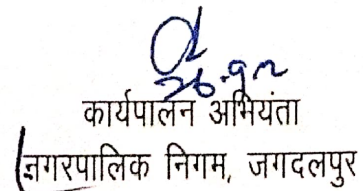 26.9.
कार्यपालन अभियंता
नगरपालिक निगम, जगदलपुर